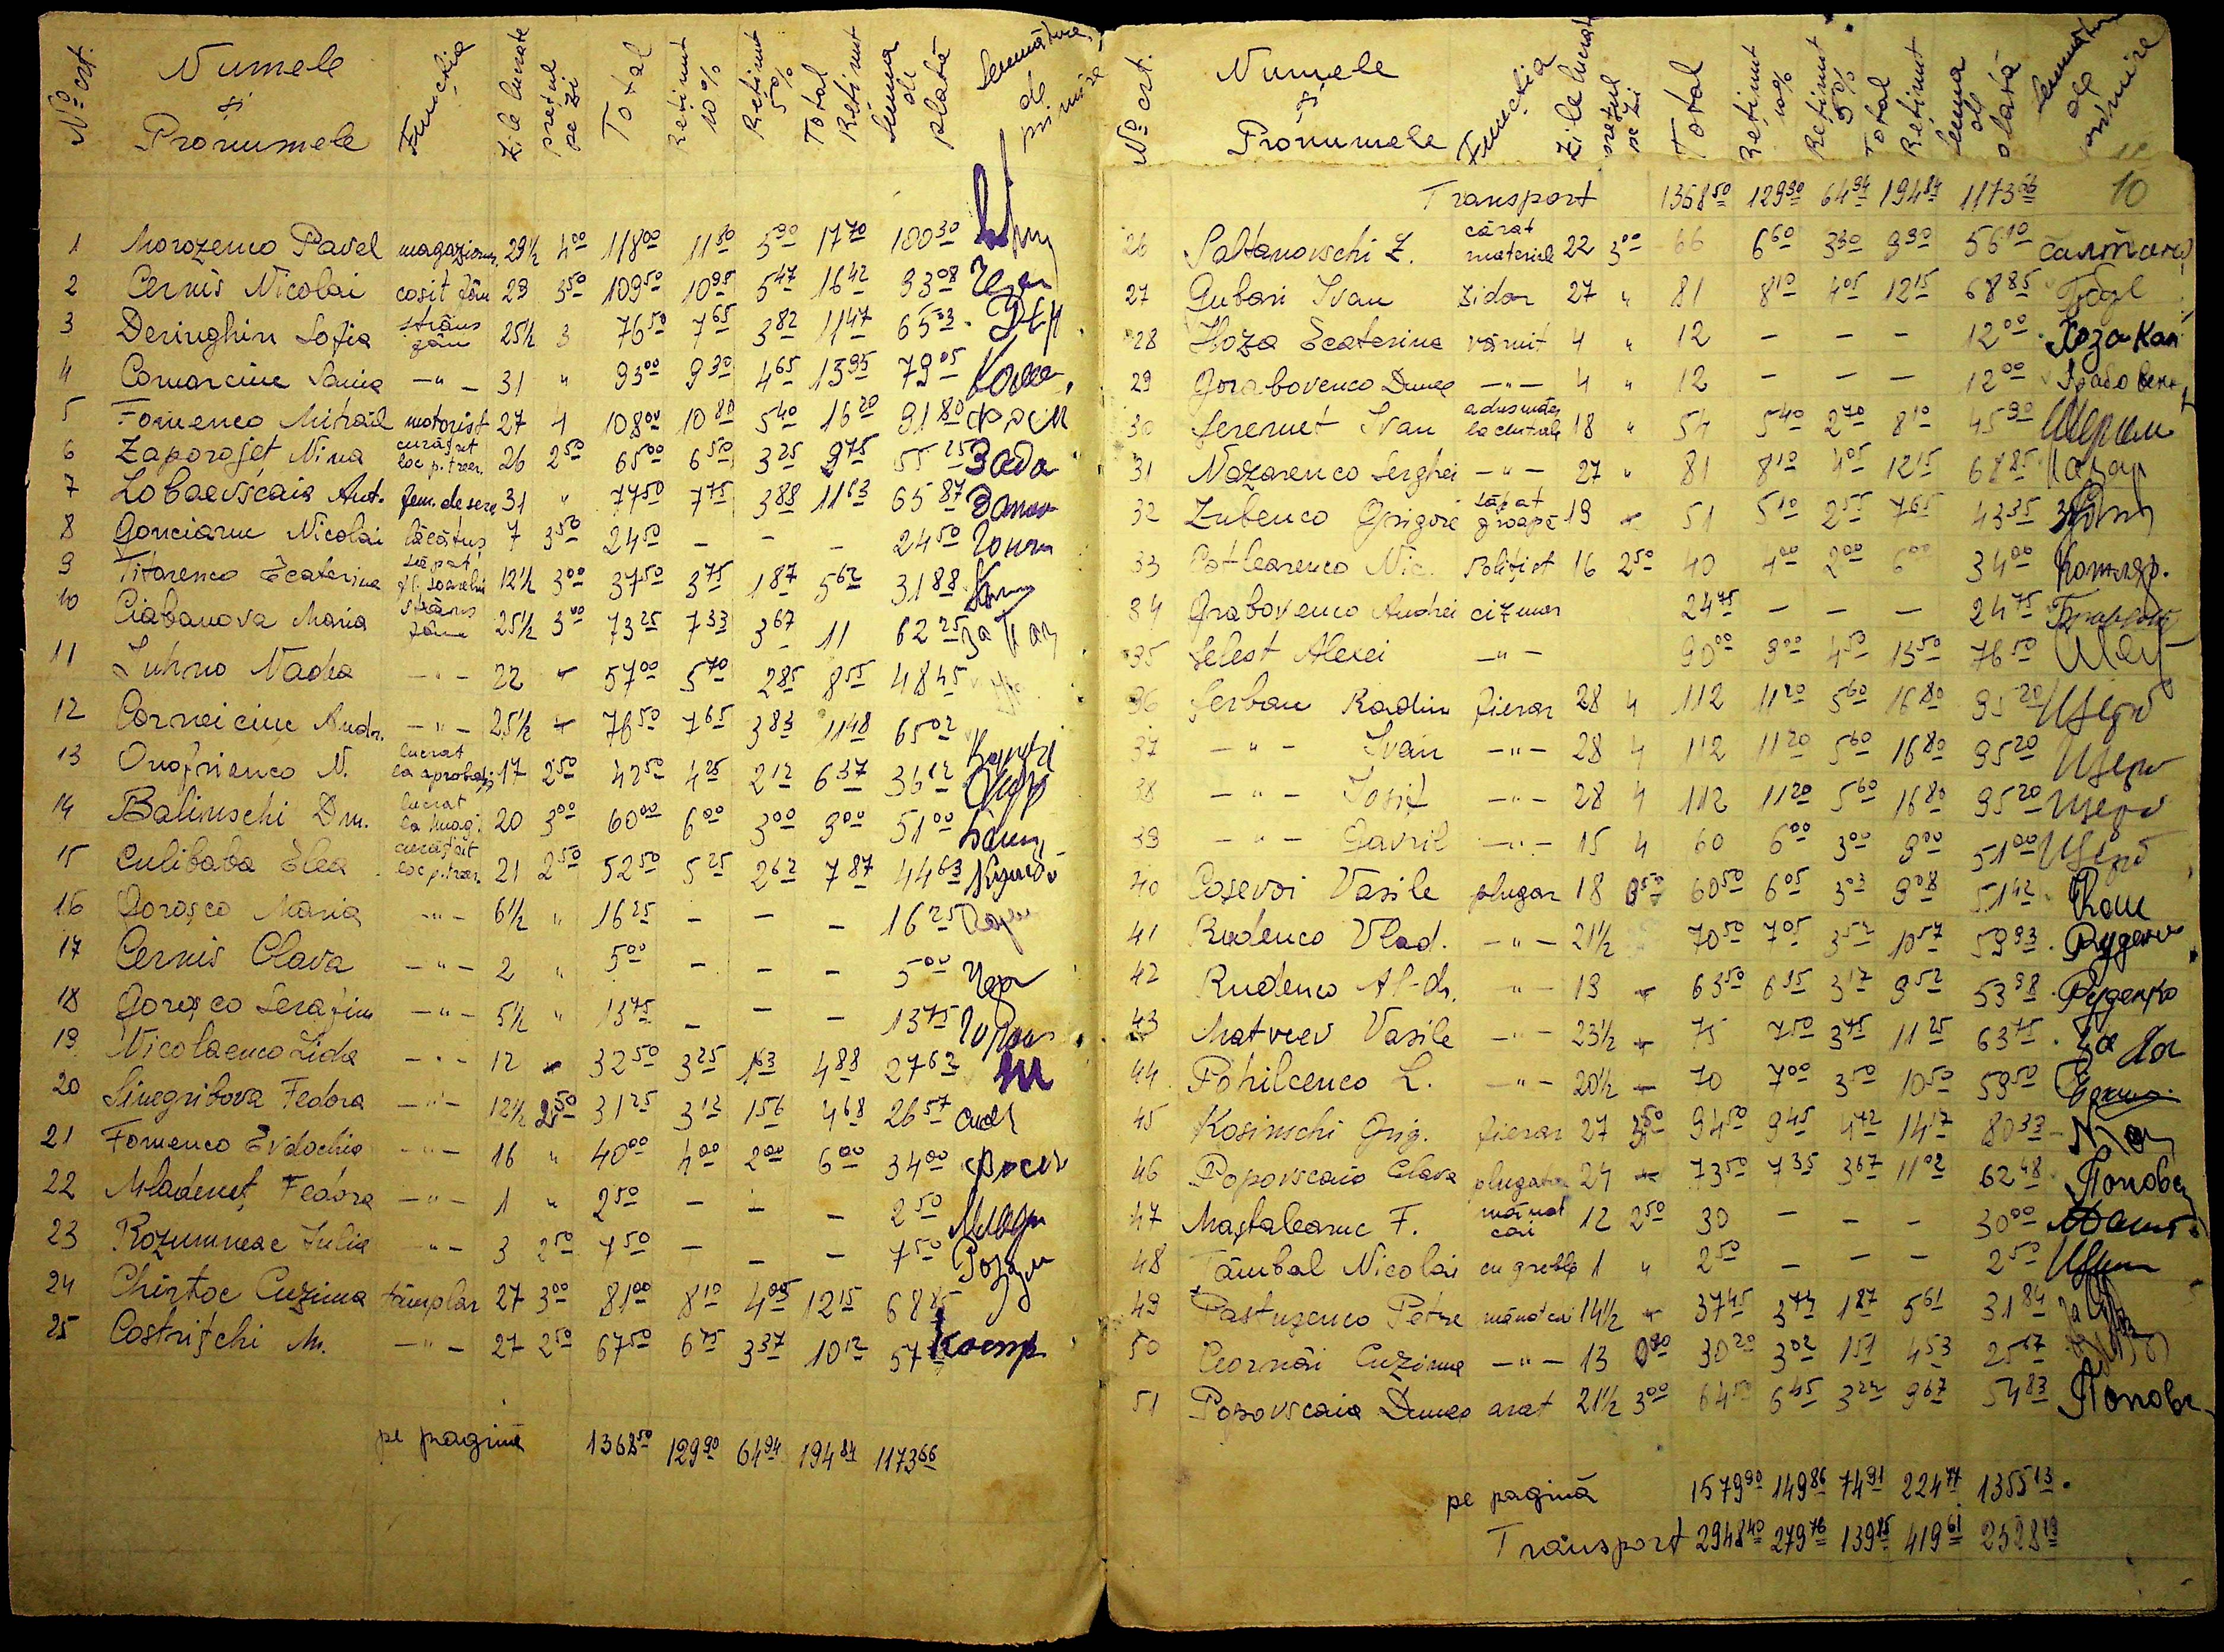 No crt. Numele și Pronumele Funcția Zile lucrate prețul pe zi Total Reținut 10% Reținut 5% Total Reținut Suma de plată Semnătura de primire
1 Morozenco Pavel magazioner 29½ 4 00 118 00 11 80 5 90 17 70 100 30
2 Cernîș Nicolai cosit fân 29 3 50 109 50 10 95 5 47 16 42 93 08
3 Deringhin Sofia strâns fân 25½ 3 76 50 7 65 3 82 11 47 65 03
4 Comarciuc Sania -"- 31 " 93 00 9 30 4 65 13 95 79 05
5 Fomenco Mihail motorist 27 4 108 00 10 80 5 40 16 20 91 80
6 Zaporojet Nina curățat loc p. treer. 26 2 50 65 00 6 50 3 25 9 75 55 25
7 Lobaevscaia Ant. fem. de serv 31 " 77 50 7 75 3 88 11 63 65 87
8 Gonciaruc Nicolai lăcătuș 7 3 50 24 50 - - - 24 50
9 Titarenco Ecaterina săpat fl. soarelui 12½ 3 00 37 50 3 75 1 87 5 62 31 88
10 Ciabanova Maria strâns fân 25½ 3 00 73 25 7 33 3 67 11 62 25
11 Suhno Nadea -"- 22 " 57 00 5 70 2 85 8 55 48 45
12 Corneiciuc Andr. -"- 25½ " 76 50 7 65 3 83 11 48 65 02
13 Onofrienco N. lucrat la aprobaț. 17 2 50 42 50 4 25 2 12 6 37 36 12
14 Balinschi Dm. lucrat la mag. 20 3 00 60 00 6 00 3 00 9 00 51 00
15 Culibaba Elea curățat loc p. treer. 21 2 50 52 50 5 25 2 62 7 87 44 63
16 Goroșco Maria -"- 6½ " 16 25 - - - 16 25
17 Cernîș Clava -"- 2 " 5 00 - - - 5 00
18 Goroșco Serafim -"- 5½ " 13 75 - - - 13 75
19 Nicolaenco Lida -"- 12 " 32 50 3 25 1 63 4 88 27 62
20 Sinegribova Fedora -"- 12½ 2 50 31 25 3 12 1 56 4 68 26 57
21 Fomenco Evdochia -"- 16 " 40 00 4 00 2 00 6 00 34 00
22 Mladeneț Fedora -"- 1 " 2 50 - - - 2 50
23 Rozumneac Iulia -"- 3 2 50 7 50 - - - 7 50
24 Chirtoc Cuzima tâmplar 27 3 00 81 00 8 10 4 05 12 15 68 85
25 Costrițchi M. -"- 27 2 50 67 50 6 75 3 37 10 12 57
pe pagină 1368 50 129 90 64 94 194 84 1173 66
No crt. Numele și Pronumele Funcția Zile lucrate prețul pe zi Total Reținut 10% Reținut 5% Total Reținut Suma de plată Semnătura de primire
Transport 1368 50 129 90 64 94 194 84 1173 66 10
26 Saltanovschi Z. cărat material 22 3 00 66 6 60 3 30 9 90 56 10
27 Gubari Ivan zidar 27 " 81 8 10 4 05 12 15 68 85
28 Hoza Ecaterina văruit 4 " 12 - - - 12 00
29 Grabovenco Dunea -"- 4 " 12 - - - 12 00
30 Șeremet Ivan la centrală 18 " 54 5 40 2 70 8 10 45 90
31 Nazarenco Serghei -"- 27 " 81 8 10 4 05 12 15 68 85
32 Zubenco Grigore săpat groapă 19 " 51 5 10 2 55 7 65 43 35
33 Cotlearenco Nic. Polițist 16 2 50 40 4 00 2 00 6 00 34 00
34 Grabovenco Andrei cizmar 24 75 - - - 24 75
35 Șelest Alexei -"- 90 00 9 00 4 50 13 50 76 50
36 Șerban Radin fierar 28 4 112 11 20 5 60 16 80 95 20
37 -"- Ivan -"- 28 4 112 11 20 5 60 16 80 95 20
38 -"- Iosif -"- 28 4 112 11 20 5 60 16 80 95 20
39 -"- Gavril -"- 15 4 60 6 00 3 00 9 00 51 00
40 Coșevoi Vasile plugar 18 3 50 60 50 6 05 3 03 9 08 51 42
41 Rudenco Vlad. -"- 21½ 70 50 7 05 3 52 10 57 59 93
42 Rudenco Al-dr. -"- 19 " 63 50 6 35 3 17 9 52 53 98
43 Matveev Vasile -"- 23½ " 75 7 50 3 75 11 25 63 75
44 Pohilcenco L. -"- 20½ " 70 7 00 3 50 10 50 59 50
45 Kosinschi Grig. fierar 27 3 50 94 50 9 45 4 72 14 17 80 33
46 Popovscaia Clava plugator 24 " 73 50 7 35 3 67 11 02 62 48
47 Maștaleariuc F. mânat cai 12 2 50 30 - - - 30 00
48 Tâmbal Nicolai cu grebla 1 " 2 50 - - - 2 50
49 Pastuzenco Petre mânat cai 14½ " 37 45 3 74 1 87 5 61 31 84
50 Ceornâi Cuzima -"- 13 30 20 3 02 1 51 4 53 25 67
51 Popovscaia Dunea arat 21½ 3 00 64 50 6 45 3 22 9 67 54 83
pe pagină 1579 90 149 86 74 91 224 77 1355 13
Transport 2948 40 279 76 139 85 419 61 2528 79